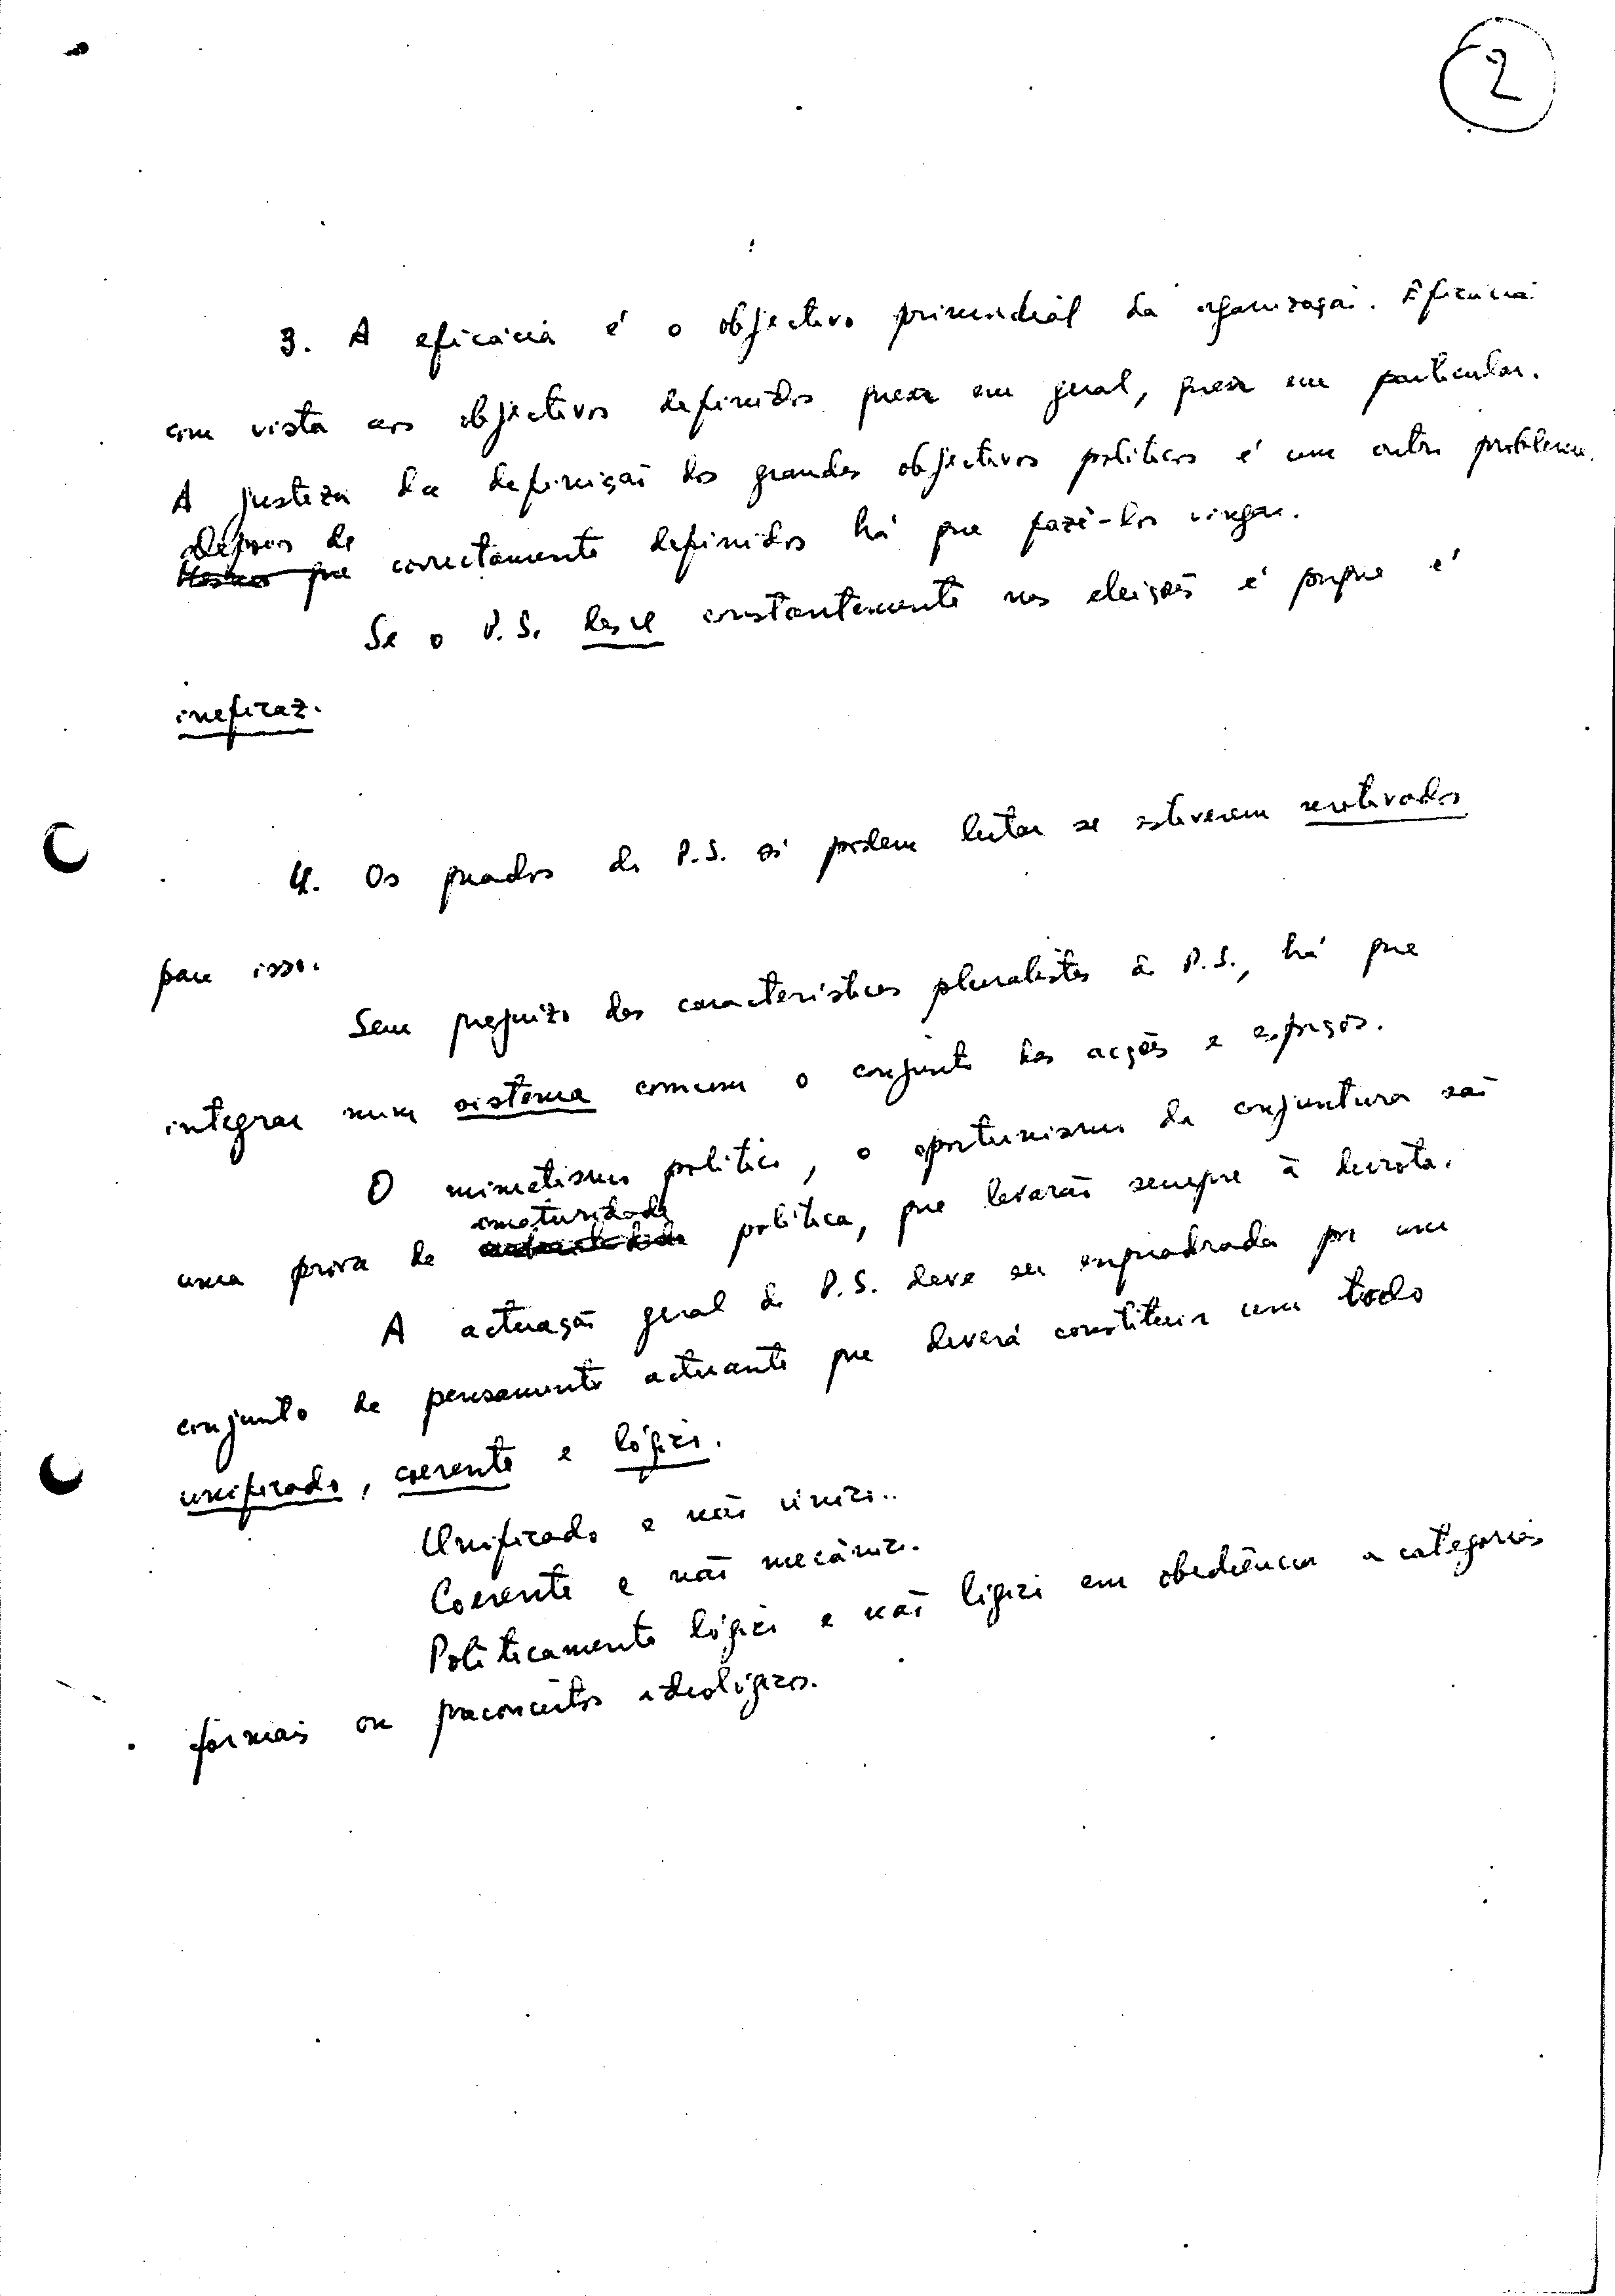 2
3. A eficácia é o objectivo primordial da organização. Eficácia
com vista aos objectivos definidos quer em geral, quer em particular.
A justeza da definição dos grandes objectivos políticos é um outro problema.
Depois de
correctamente definidos há que fazê-los vingar.
Se o P.S. desce constantemente nas eleições é porque é
ineficaz.
4. Os quadros do P.S. só podem lutar se estiverem motivados
para isso.
Sem prejuízo das características pluralistas do P.S., há que
integrar num sistema comum o conjunto das acções e esforços.
O mimetismo político, o oportunismo da conjuntura são
imaturidade
uma prova de política, que levarão sempre à derrota.
A actuação geral do P.S. deve ser enquadrada por um
conjunto de pensamento actuante que deverá constituir um todo
unificado, coerente e lógico.
Unificado e não único..
Coerente e não mecânico.
Politicamente lógico e não lógico em obediência a categorias
formais ou preconceitos ideológicos.